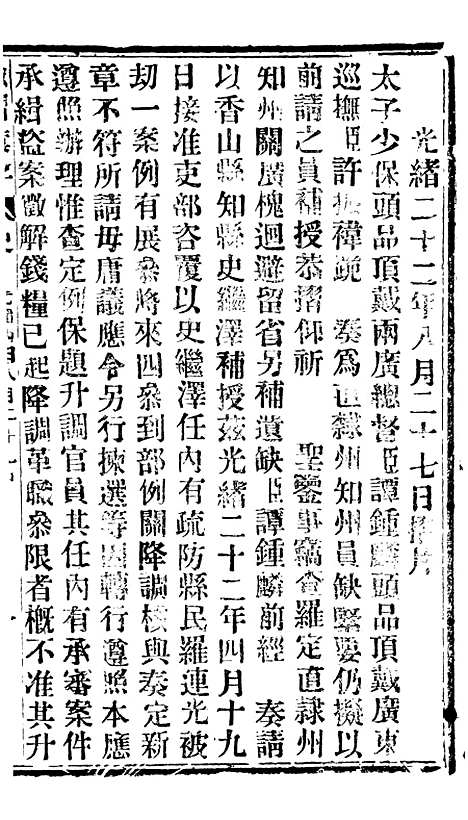 光緒二十二年八月二十七日
太子少保頭品頂戴兩廣總督臣譚鍾麟頭品頂戴廣東
巡撫臣許振禕跪　奏為直隸州知州員缺緊要仍擬以
前請之員補授恭摺仰祈　聖鑒事竊查羅定直隸州
知州關廣槐迴避留省另補遺缺臣譚鍾麟前經　奏請
以香山縣知縣史繼澤補授茲光緒二十二年四月十九
日接准吏部咨覆以史繼澤任內有疏防縣民羅連光被
刧一案例有展叅將來四叅到部例關降調核與奏定新
章不符所請毋庸議應令另行揀選等因轉行遵照本應
遵照辦理惟查定例保題升調官員其任內有承審案件
承緝盜案徵解錢糧已起降調革職叅限者概不准其升